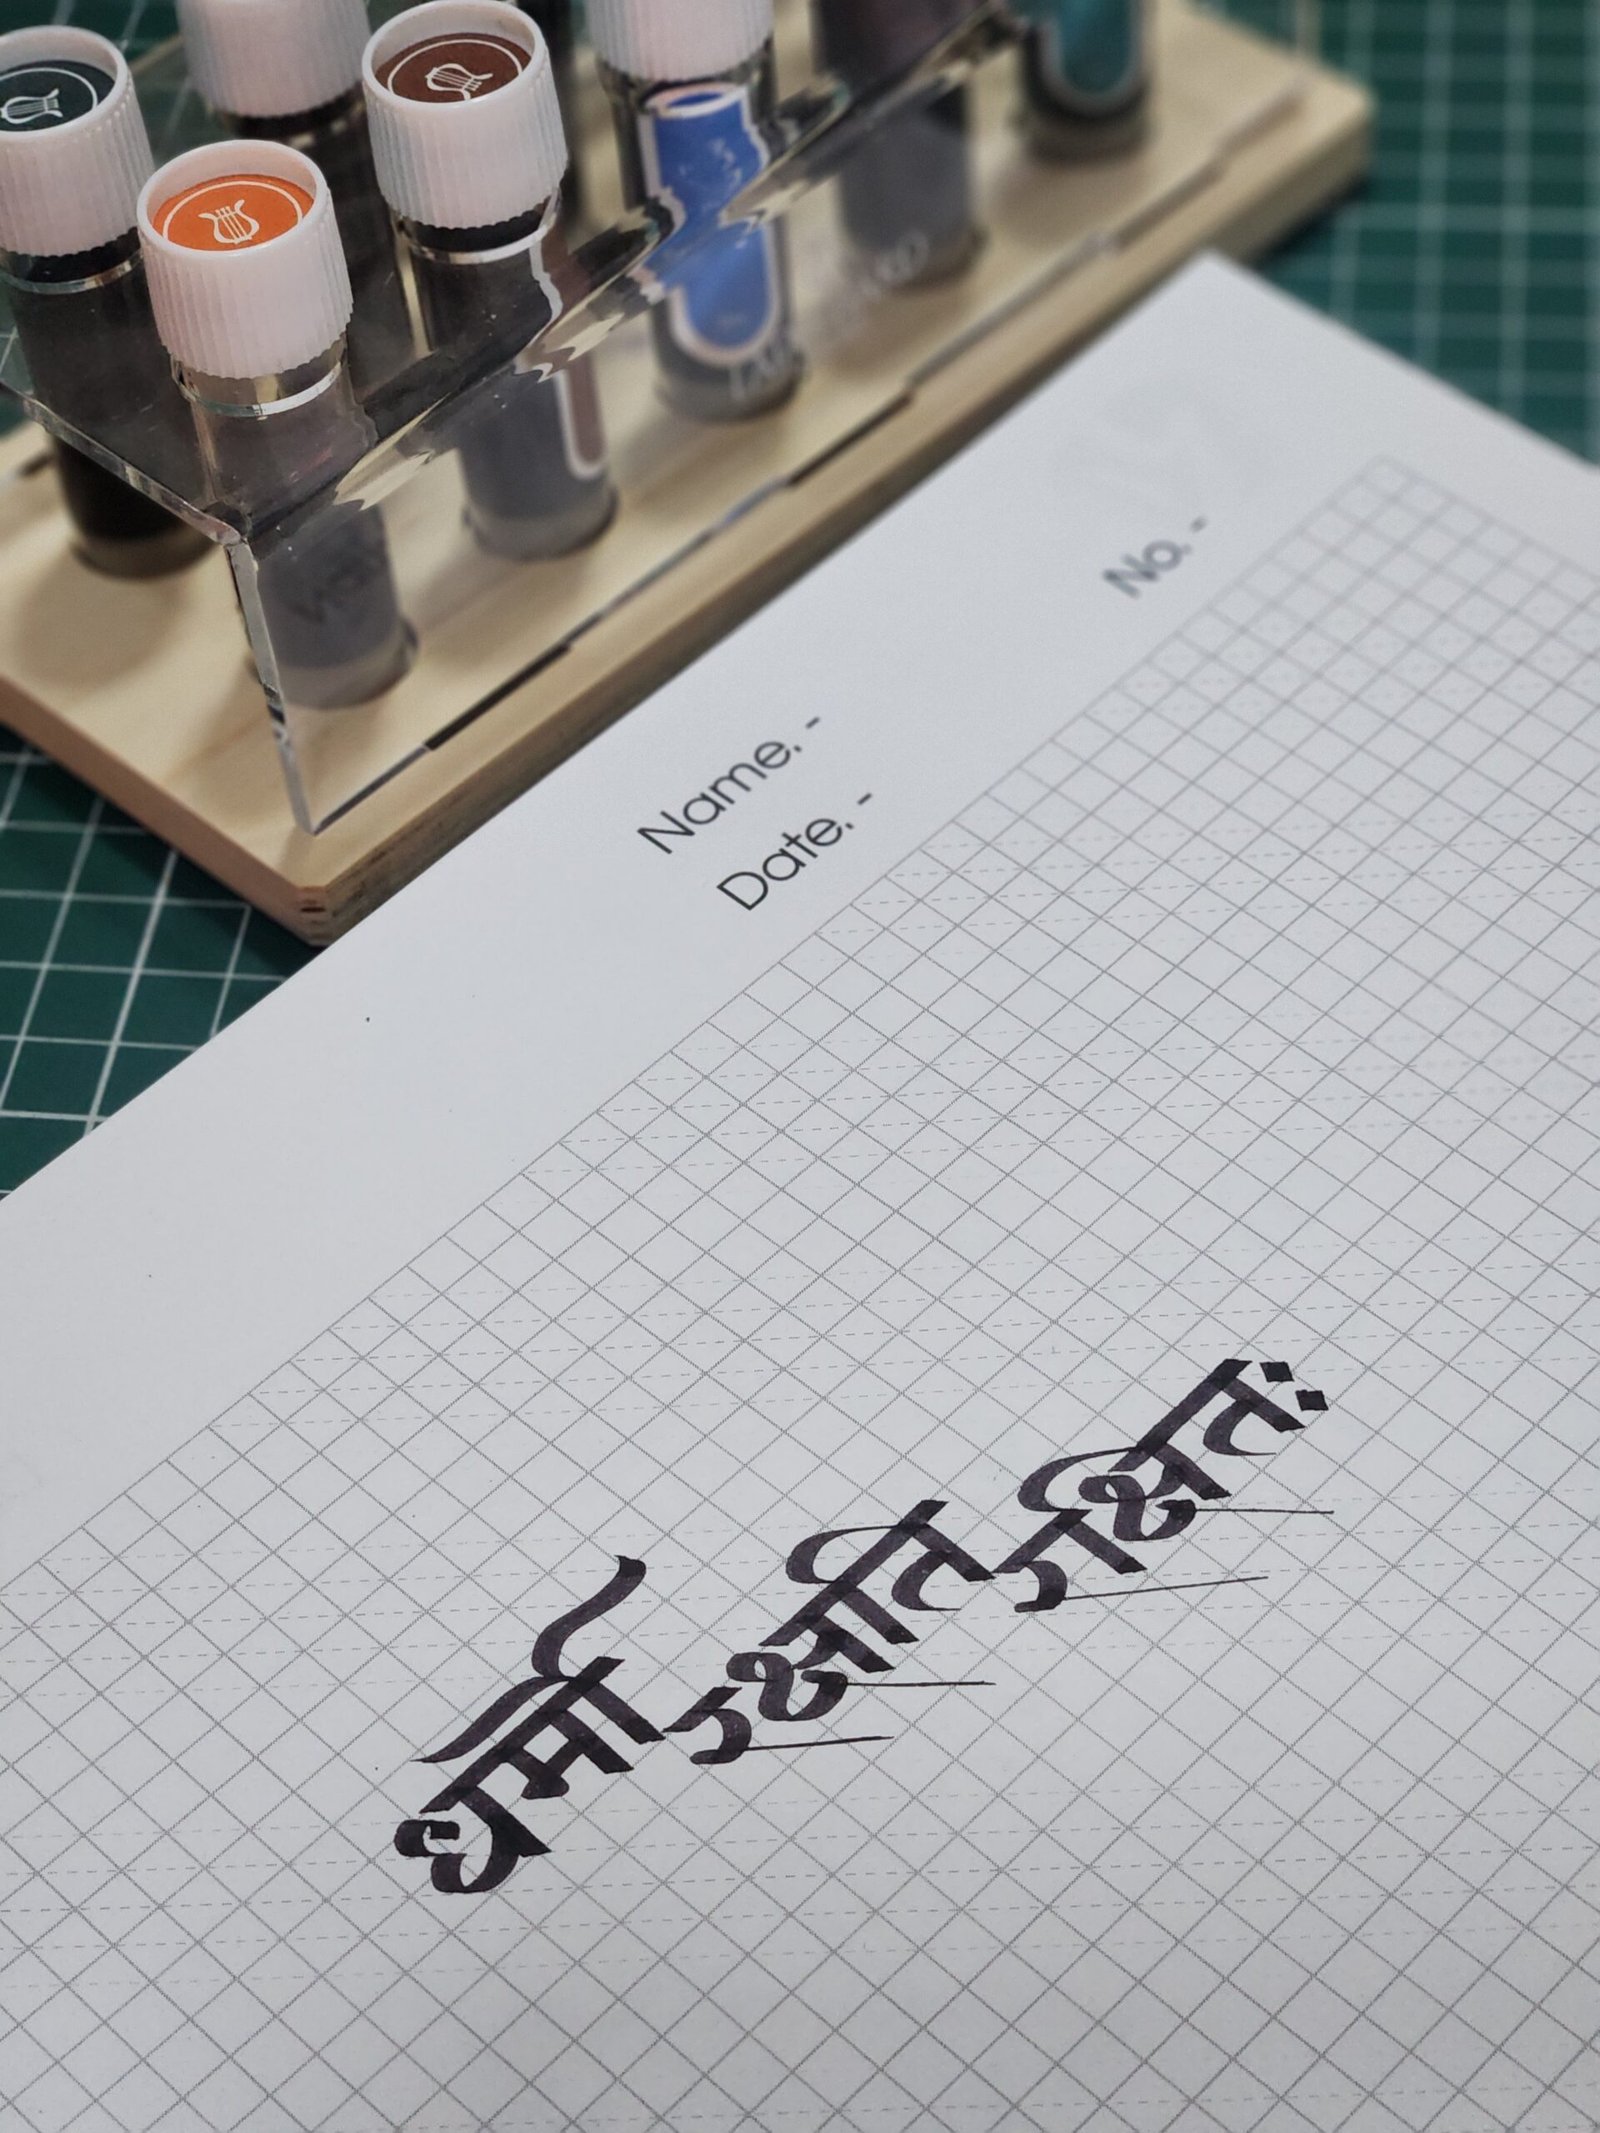 Name. -
Date. - No. -
धर्मो रक्षति रक्षितः